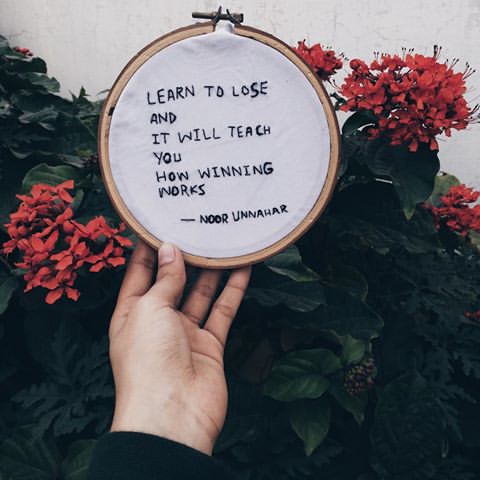 LEARN TO LOSE
AND
IT WILL TEACH
YOU
HOW WINNING
WORKS
— NOOR UNNAHAR